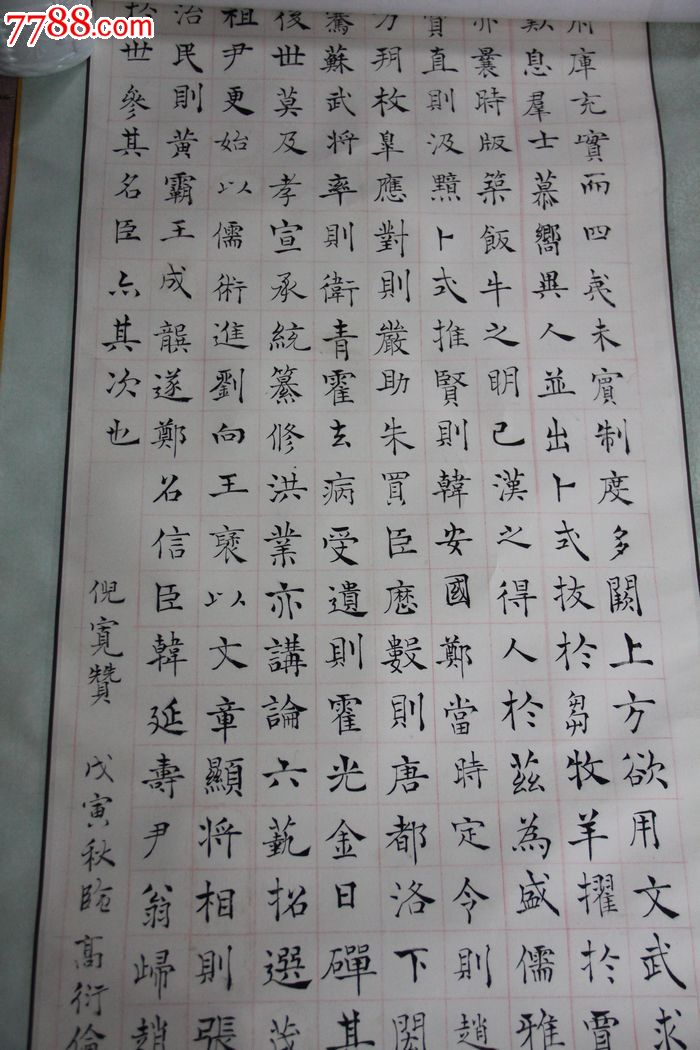 7788.com
庫充實而四夷未賓制度多闕上方欲用文武求
歎息羣士慕嚮異人並出卜式拔於芻牧羊擢於賈
亦曩時版築飯牛之明已漢之得人於茲為盛儒雅
質直則汲黯卜式推賢則韓安國鄭當時定令則趙
方朔枚皋應對則嚴助朱買臣歷數則唐都洛下閎
騫蘇武將率則衛青霍去病受遺則霍光金日磾其
後世莫及孝宣承統纂修洪業亦講論六藝招選茂
祖尹更始以儒術進劉向王襃以文章顯將相則張
治民則黃霸王成龔遂鄭名信臣韓延壽尹翁歸趙
於世參其名臣亦其次也
倪寬贊 戊寅秋臨高衍倫